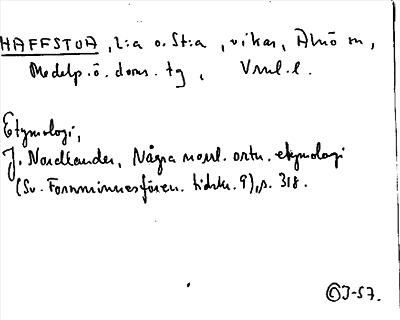 HAFFSTOA, L:a o. St:a, vikar, Alnö sn,
Medelp. ö. doms. tg,
Etymologi,
J. Nordlander, Några norrl. ortn. etymologi
(Sv. Fornminnesfören. tidskr. 9), s. 318.
©J-57.